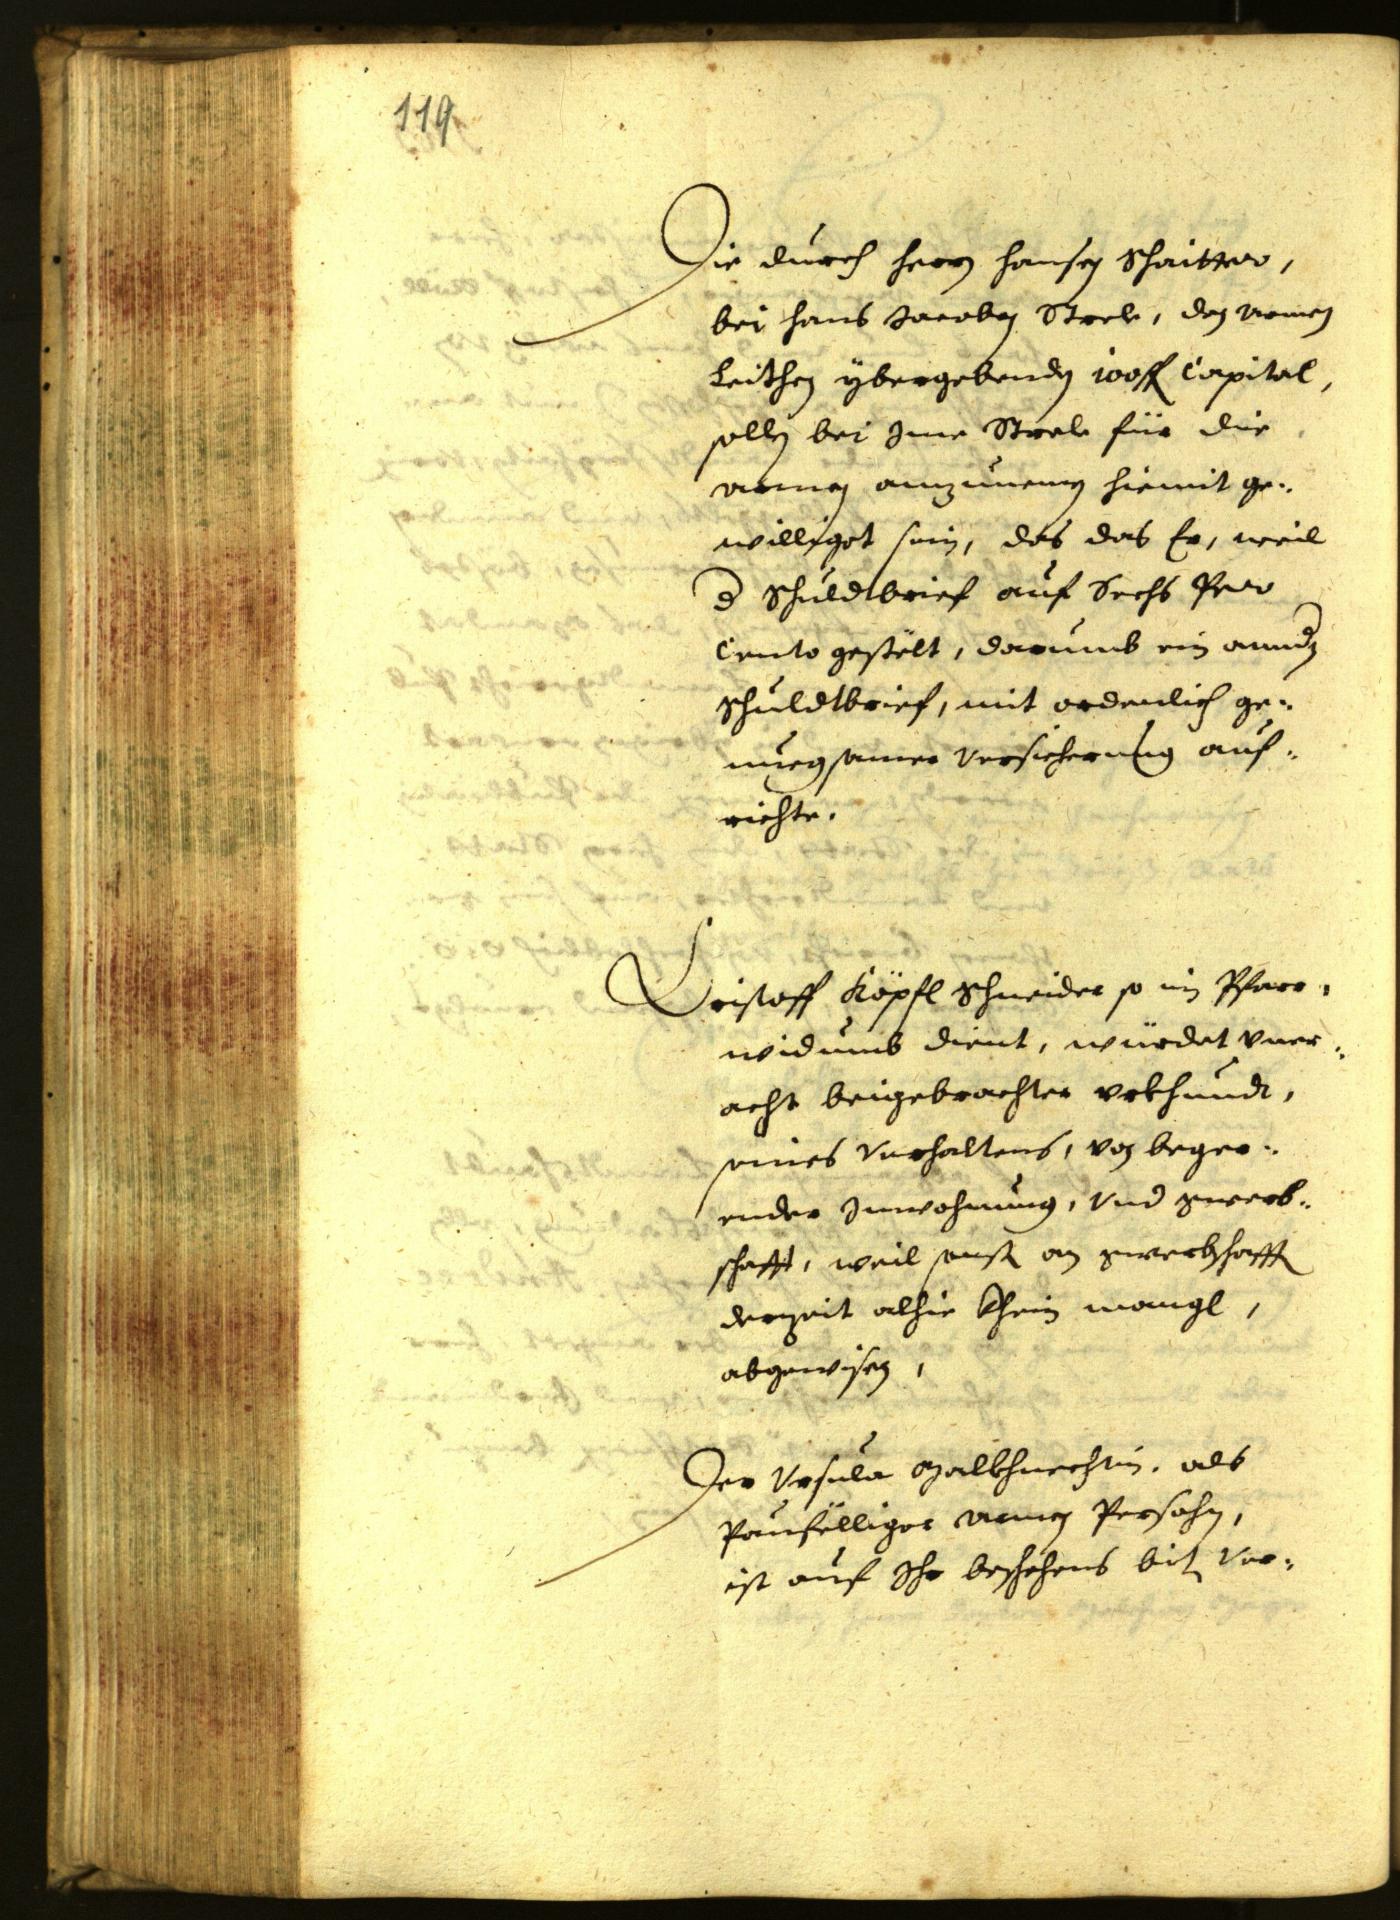 119
Die durch herrn Hansen Schaitter,
bei Hans Jacoben Strele, den armen
Leithen ÿbergebenden 100 fl Capital,
sollen bei Ime Strele für die
armen anzunemen hiemit ge¬
willigt sein, das das Er, weil
d Schuldtbrief auf Sechs Pero
Cento gestölt, darumb ein anndn
Schuldtbrief, mit ordenlich ge¬
nuegsamer Versicherung auf¬
richte.
Cristoff Köpfl Schneider so im Pfarr¬
widumb dient, würdet vner¬
acht beigebrachter vrkhundt,
seines Verhaltens, von beger¬
ender Inwohnung, Vnd gwerb¬
schafft, weil sonst an gwerbschafft
derzeit alhie khein mangl,
abgewisen,
Der Vrsula Malkhnechtin, als
Paufölliger armen Persohn,
ist auf Ihr beschehens bit Ver¬